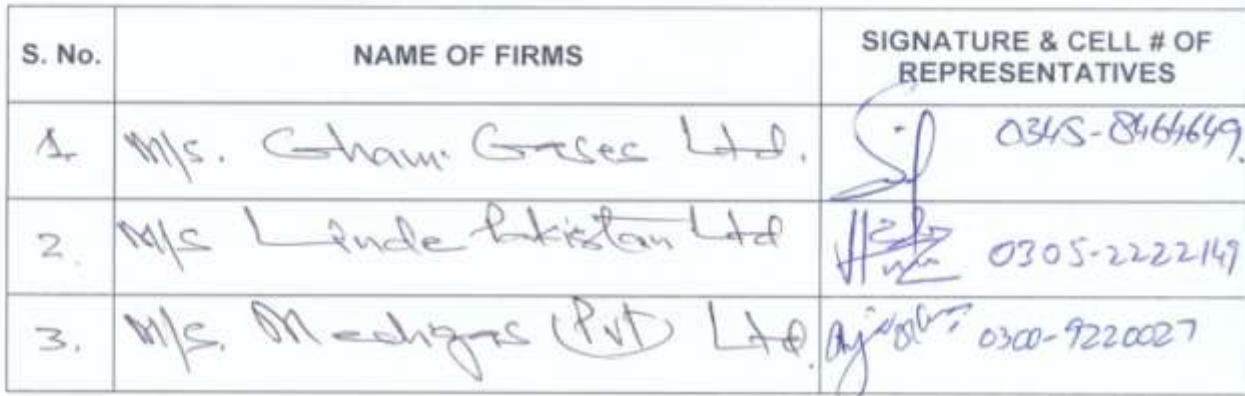 S. No. NAME OF FIRMS SIGNATURE & CELL # OF
REPRESENTATIVES
1. M/s. Ghani Gases Ltd. 0345-8464649.
2. M/s Linde Pakistan Ltd 0305-2222149
3. M/s. Medigas (Pvt) Ltd. 0300-9220027